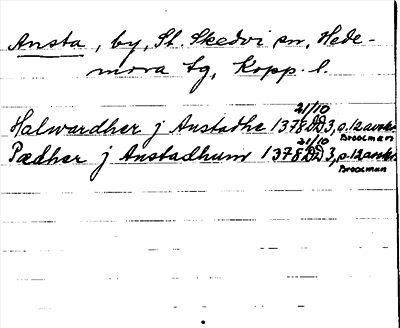 Ansta, by, St. Skedvi sn, Hede-
mora tg, Kopp. l.
21/10
Halwardher j Anstadhe 1378 DD3, o.12 avskr.
Broocman
21/10
Pædher j Anstadhum 1378 DD3, o.12 avskr.
Broocman